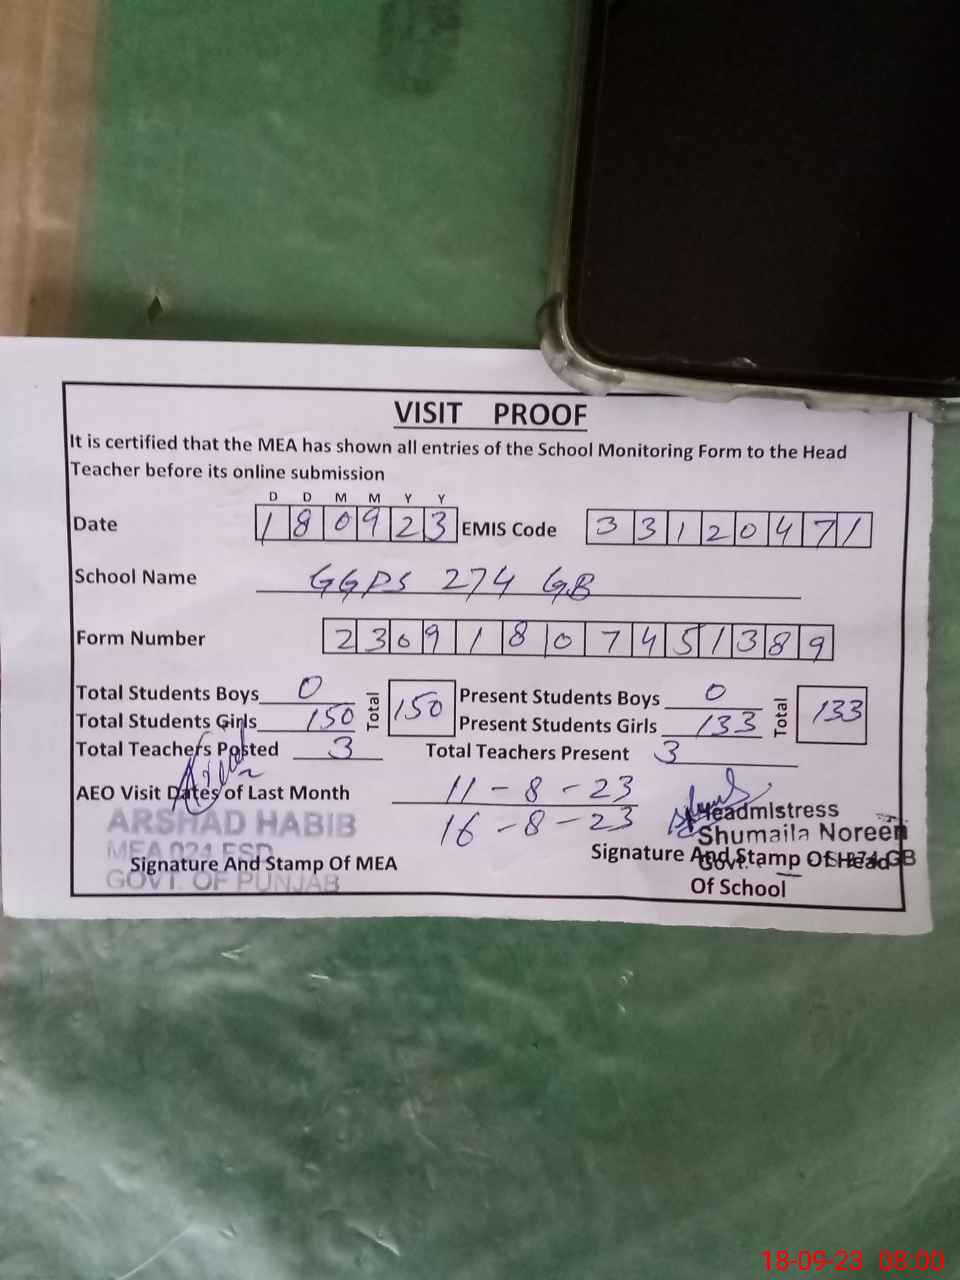 VISIT PROOF
It is certified that the MEA has shown all entries of the School Monitoring Form to the Head
Teacher before its online submission
D D M M Y Y
Date 1 8 0 9 2 3 EMIS Code 3 3 1 2 0 4 7 1
School Name GGPS 274 GB
Form Number 2 3 0 9 1 8 0 7 4 5 1 3 8 9
Total Students Boys 0 Total 150 Present Students Boys 0 Total 133
Total Students Girls 150 Present Students Girls 133
Total Teachers Posted 3 Total Teachers Present 3
AEO Visit Dates of Last Month 11-8-23
16-8-23
Headmistress
ARSHAD HABIB
Shumaila Noreen
MEA 024 FSD
Signature And Stamp Of MEA
Signature And Stamp Of Head
GOVT. OF PUNJAB
Of School
18-09-23 08:00